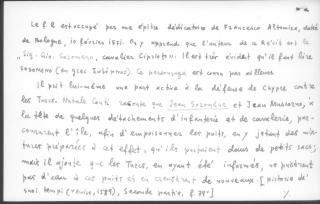 Le f. 2 est occupé par une épître dédicatoire de Francesco Altomira, datée
de Bologne, 10 février 1571. On y apprend que l'auteur de ce Récit est le
„Sig. Gio. Sozomeno, cavalier Cipriotto". Il est très évident qu'il faut lire
Sozomeno (en grec Σωζόμενος). Ce personnage est connu par ailleurs.
Il prit lui-même une part active à la défense de Chypre contre
les Turcs. Natale Conti raconte que Jean Sozomène et Jean Musrazzo, à
la tête de quelques détachements d'infanterie et de cavalerie, par-
coururent l'île, afin d'empoisonner les puits, en y jetant des mix-
tures préparées à cet effet, qu'ils portaient dans de petits sacs;
mais il ajoute que les Turcs, en ayant été informés, ne puisèrent
pas d'eau à ces puits et en creusèrent de nouveaux. [Historie de'
suoi tempi (Venise, 1589), Seconde partie, f. 79